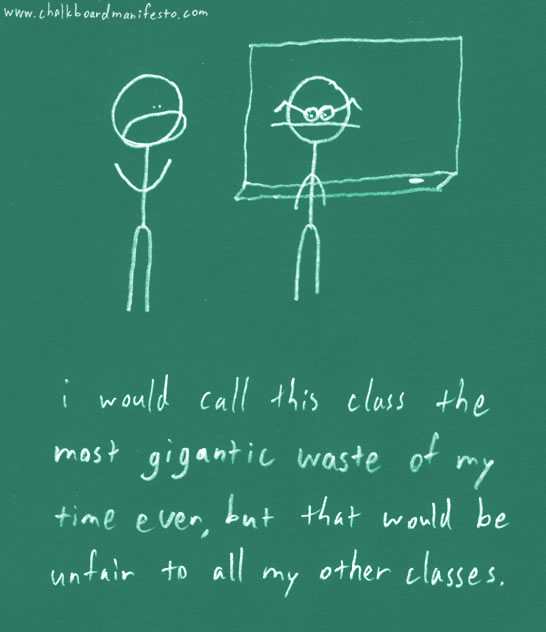 www.chalkboardmanifesto.com
i would call this class the
most gigantic waste of my
time ever, but that would be
unfair to all my other classes.